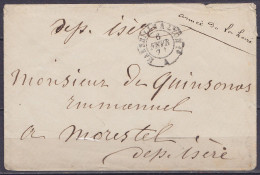 dep. isère
armée de
5
JANV
71
Monsieur de Quinsonas
Emmanuel
a Morestel
dep. isère